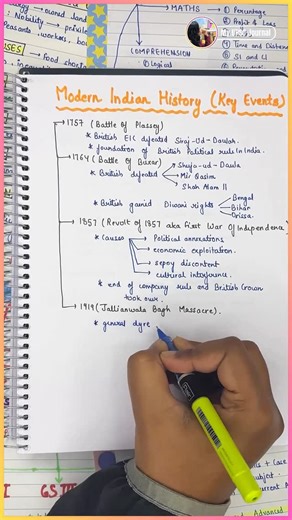 MATHS
1) Percentage
2) Profit & Loss
4) Time and Distance
5) SI and CI
COMPREHENSION
1) Logical
My Blog Journal
Modern Indian History (Key Events)
1757 (Battle of Plassey)
* British EIC defeated Siraj-Ud-Daulah.
* foundation of British Political rule in India.
1764 (Battle of Buxar)
* British defeated
Shuja-ud-Daula
Mir Qasim
Shah Alam II
* British gained Diwani rights
Bengal
Bihar
Orissa.
1857 (Revolt of 1857 aka First War Of Independence)
* Causes
Political annexations
economic exploitation.
sepoy discontent
cultural interference.
* end of company rule and British Crown
took over.
1919 (Jallianwala Bagh Massacre).
* general dyre